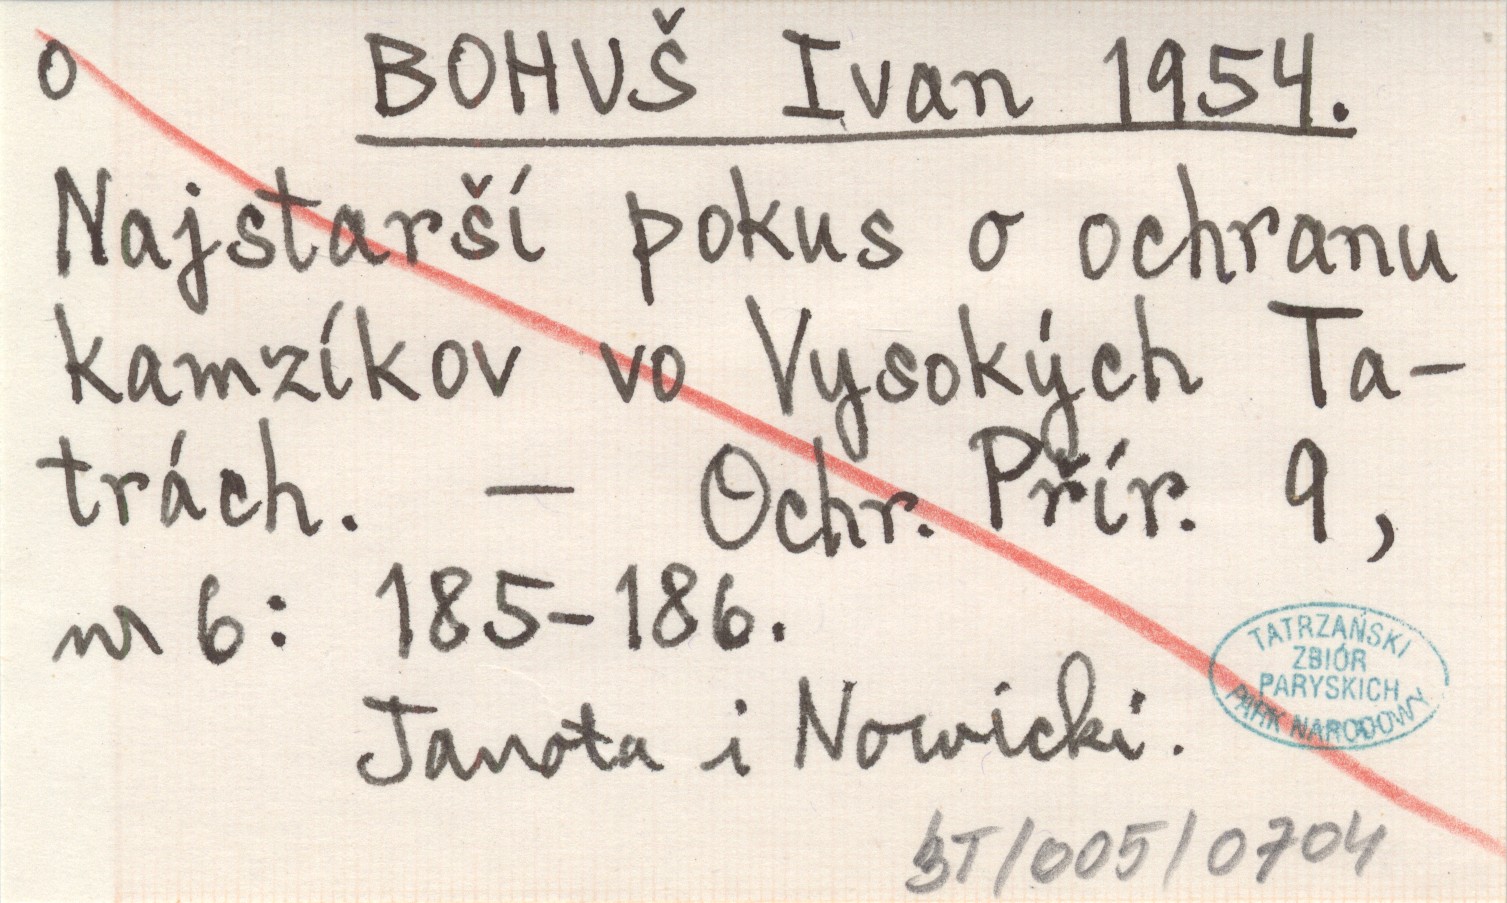 o BOHUŠ Ivan 1954.
Najstarší pokus o ochranu
kamzíkov vo Vysokých Ta-
trách. – Ochr. Přír. 9,
nr 6: 185-186.
Janota i Nowicki.
TATRZAŃSKI
ZBIÓR
PARYSKICH
PARK NARODOWY
BT/005/0704